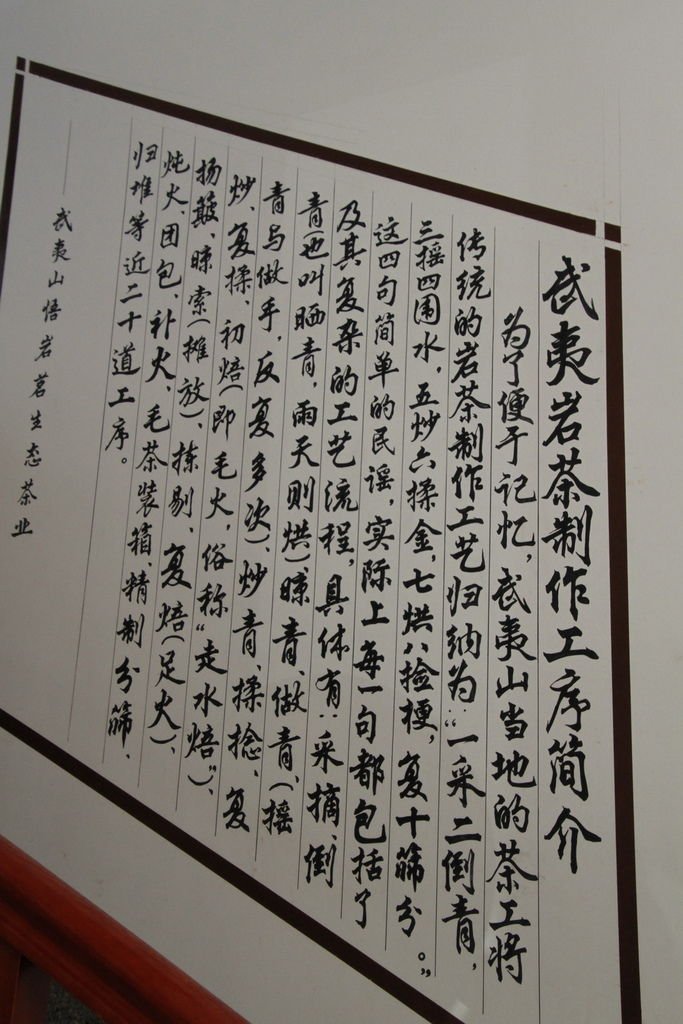 武夷岩茶制作工序简介
为了便于记忆,武夷山当地的茶工将
传统的岩茶制作工艺归纳为:“一采二倒青,
三摇四围水,五炒六揉金,七烘八捡梗,复十筛分。”
这四句简单的民谣,实际上每一句都包括了
及其复杂的工艺流程,具体有:采摘、倒
青(也叫晒青,雨天则烘)、晾青、做青、(摇
青与做手,反复多次)、炒青、揉捻、复
炒、复揉、初焙(即毛火,俗称“走水焙”)、
扬簸、晾索(摊放)、拣剔、复焙(足火)、
炖火、团包、补火、毛茶装箱、精制分筛、
归堆等近二十道工序。
武夷山悟岩茗生态茶业